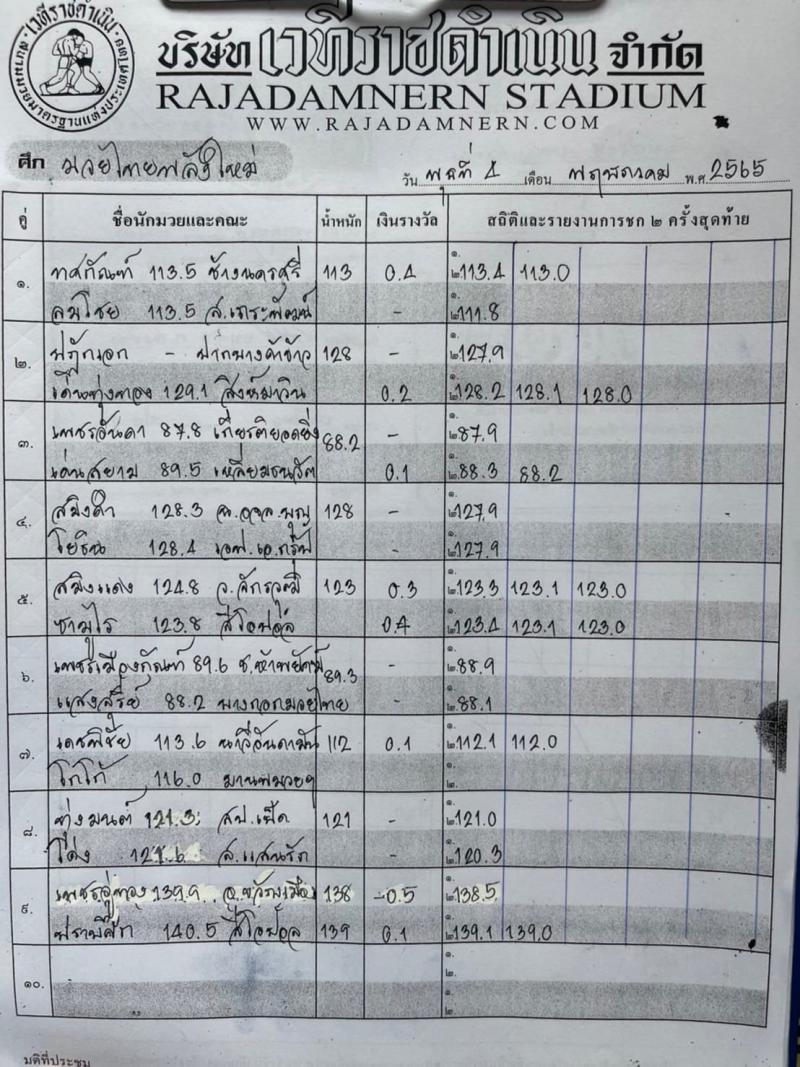 เวทีราชดำเนิน
สนามมวยมาตรฐานแห่งประเทศไทย
บริษัท เวทีราชดำเนิน จำกัด
RAJADAMNERN STADIUM
WWW.RAJADAMNERN.COM
ศึก มวยไทยพลังใหม่ วัน พุธที่ 4 เดือน พฤษภาคม พ.ศ. 2565
คู่ ชื่อนักมวยและคณะ น้ำหนัก เงินรางวัล สถิติและรายงานการชก ๒ ครั้งสุดท้าย
๑. ทศกัณฑ์ 113.5 ช้างนครศรี 113 0.4 ๑. ๒. 113.4 113.0
ลมโชย 113.5 - ๑. ๒. 111.8
๒. - ปากบางค้าข้าว 128 - ๑. ๒. 127.9
เด่นทุ่งทอง 129.1 สิงห์มาวิน 0.2 ๑. ๒. 128.2 128.1 128.0
๓. เพชรอันดา 87.8 เกียรติยอดยิ่ง 88.2 - ๑. ๒. 87.9
เด่นสยาม 89.5 เหลี่ยมธนวัต 0.1 ๑. ๒. 88.3 88.2
๔. สมิงดำ 128.3 128 - ๑. ๒. 127.9
โยธิน 128.4 เอฟ.เอ.กรุ๊ป - ๑. ๒. 127.9
๕. สมิงแดง 124.8 อ.จักรวุฒิ 123 0.3 ๑. ๒. 123.3 123.1 123.0
ซามูไร 123.8 สีโอปอล 0.4 ๑. ๒. 123.4 123.1 123.0
๖. เพชรเมืองกัณฑ์ 89.6 ช.ห้าพยัคฆ์ 89.3 - ๑. ๒. 88.9
แสงสุรีย์ 88.2 บางกอกมวยไทย - ๑. ๒. 88.1
๗. เดชพิชัย 113.6 นาวีอันดามัน 112 0.1 ๑. ๒. 112.1 112.0
โกโก้ 116.0 ๑. ๒.
๘. ทุ่งมนต์ 121.3 สป.เป็ด 121 - ๑. ๒. 121.0
โด่ง 121.6 ส.แสนรัก - ๑. ๒. 120.3
๙. เพชรอู่ทอง 139.9 อ.ขวัญเมือง 138 -0.5 ๑. ๒. 138.5
ปราบศึก 140.5 สีโอปอล 139 0.1 ๑. ๒. 139.1 139.0
๑๐. ๑.
๒.
๑.
๒.
มติที่ประชุม